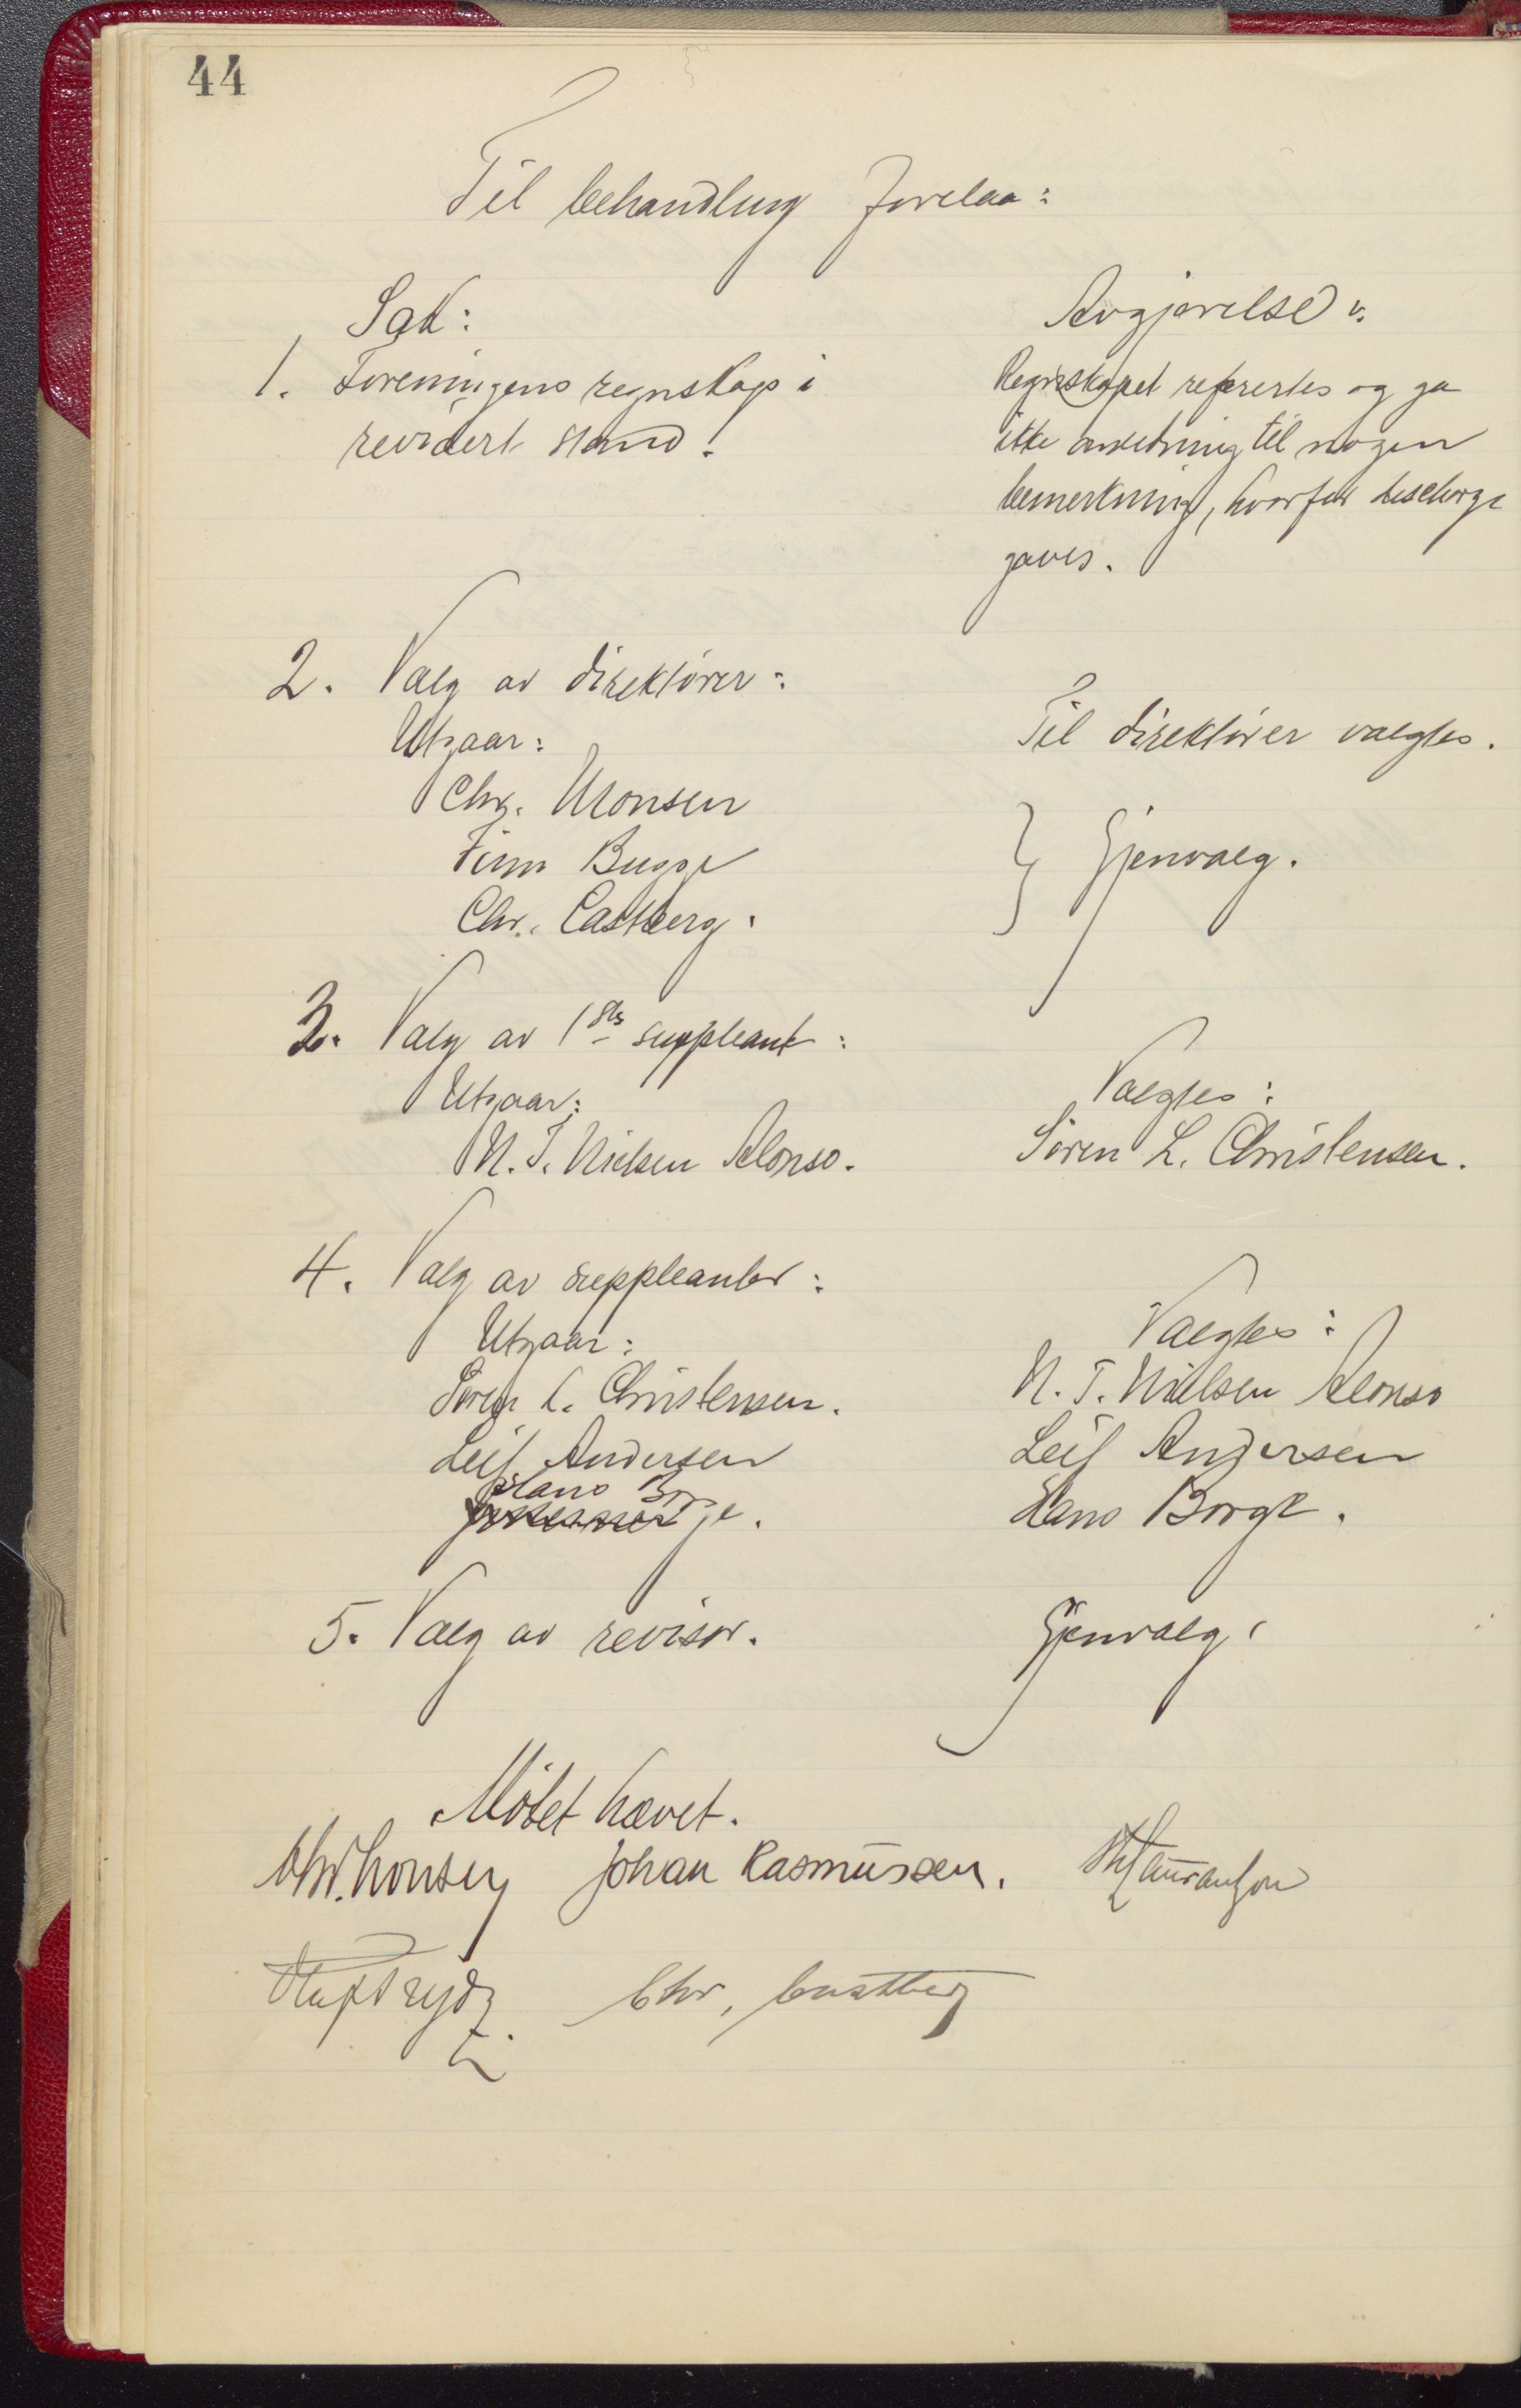 44
Til behandling forelaa:
Sak:
Avgjørelse:
1. Foreningens regnskap i
revidert stand.
Regnskapet refertes og ga
ikke anledning til nogen
bemerkning, hvorfor decharge
gaves.
2. Valg av direktører:
Utgaar:
Chr. Monsen
Finn Bugge
Chr. Castberg.
Til direktører valgtes.
} Gjenvalg.
3. Valg av 1ste suppleant:
Utgaar:
N. T. Nielsen Alonso.
Valgtes:
Søren L. Christensen.
4. Valg av suppleanter:
Utgaar:
Søren L. Christensen.
Leif Andersen
Hans Borge.
Valgtes:
N. T. Nielsen Alonso
Leif Andersen
Hans Borge.
5. Valg av revisor.
Gjenvalg.
Møtet hævet.
Chr. Monsen Johan Rasmussen.
Chr. Castberg